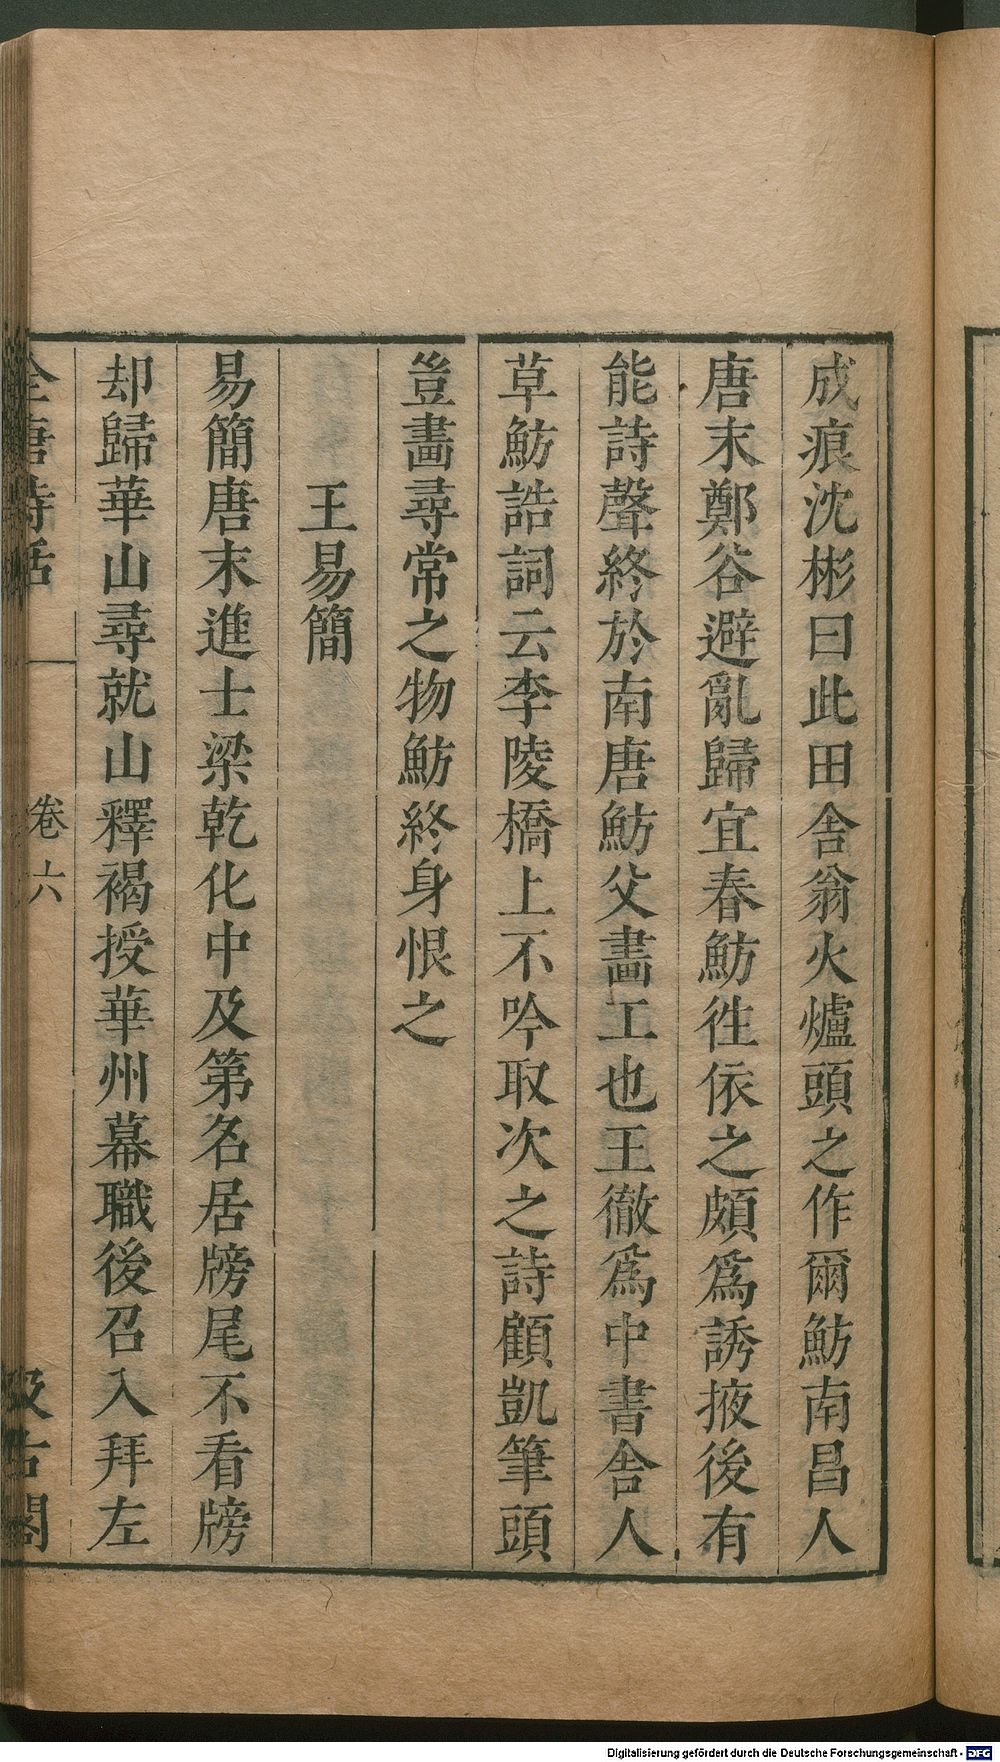 成痕沈彬曰此田舍翁火爐頭之作爾魴南昌人
唐末鄭谷避亂歸宜春魴徃依之頗爲誘掖後有
能詩聲終於南唐魴父畫工也王徹爲中書舍人
草魴誥詞云李陵橋上不吟取次之詩顧凱筆頭
豈畫尋常之物魴終身恨之
王易簡
易簡唐末進士梁乾化中及第名居牓尾不看牓
却歸華山尋就山釋褐授華州幕職後召入拜左
全唐詩話 卷六 汲古閣
Digitalisierung gefördert durch die Deutsche Forschungsgemeinschaft - DFG